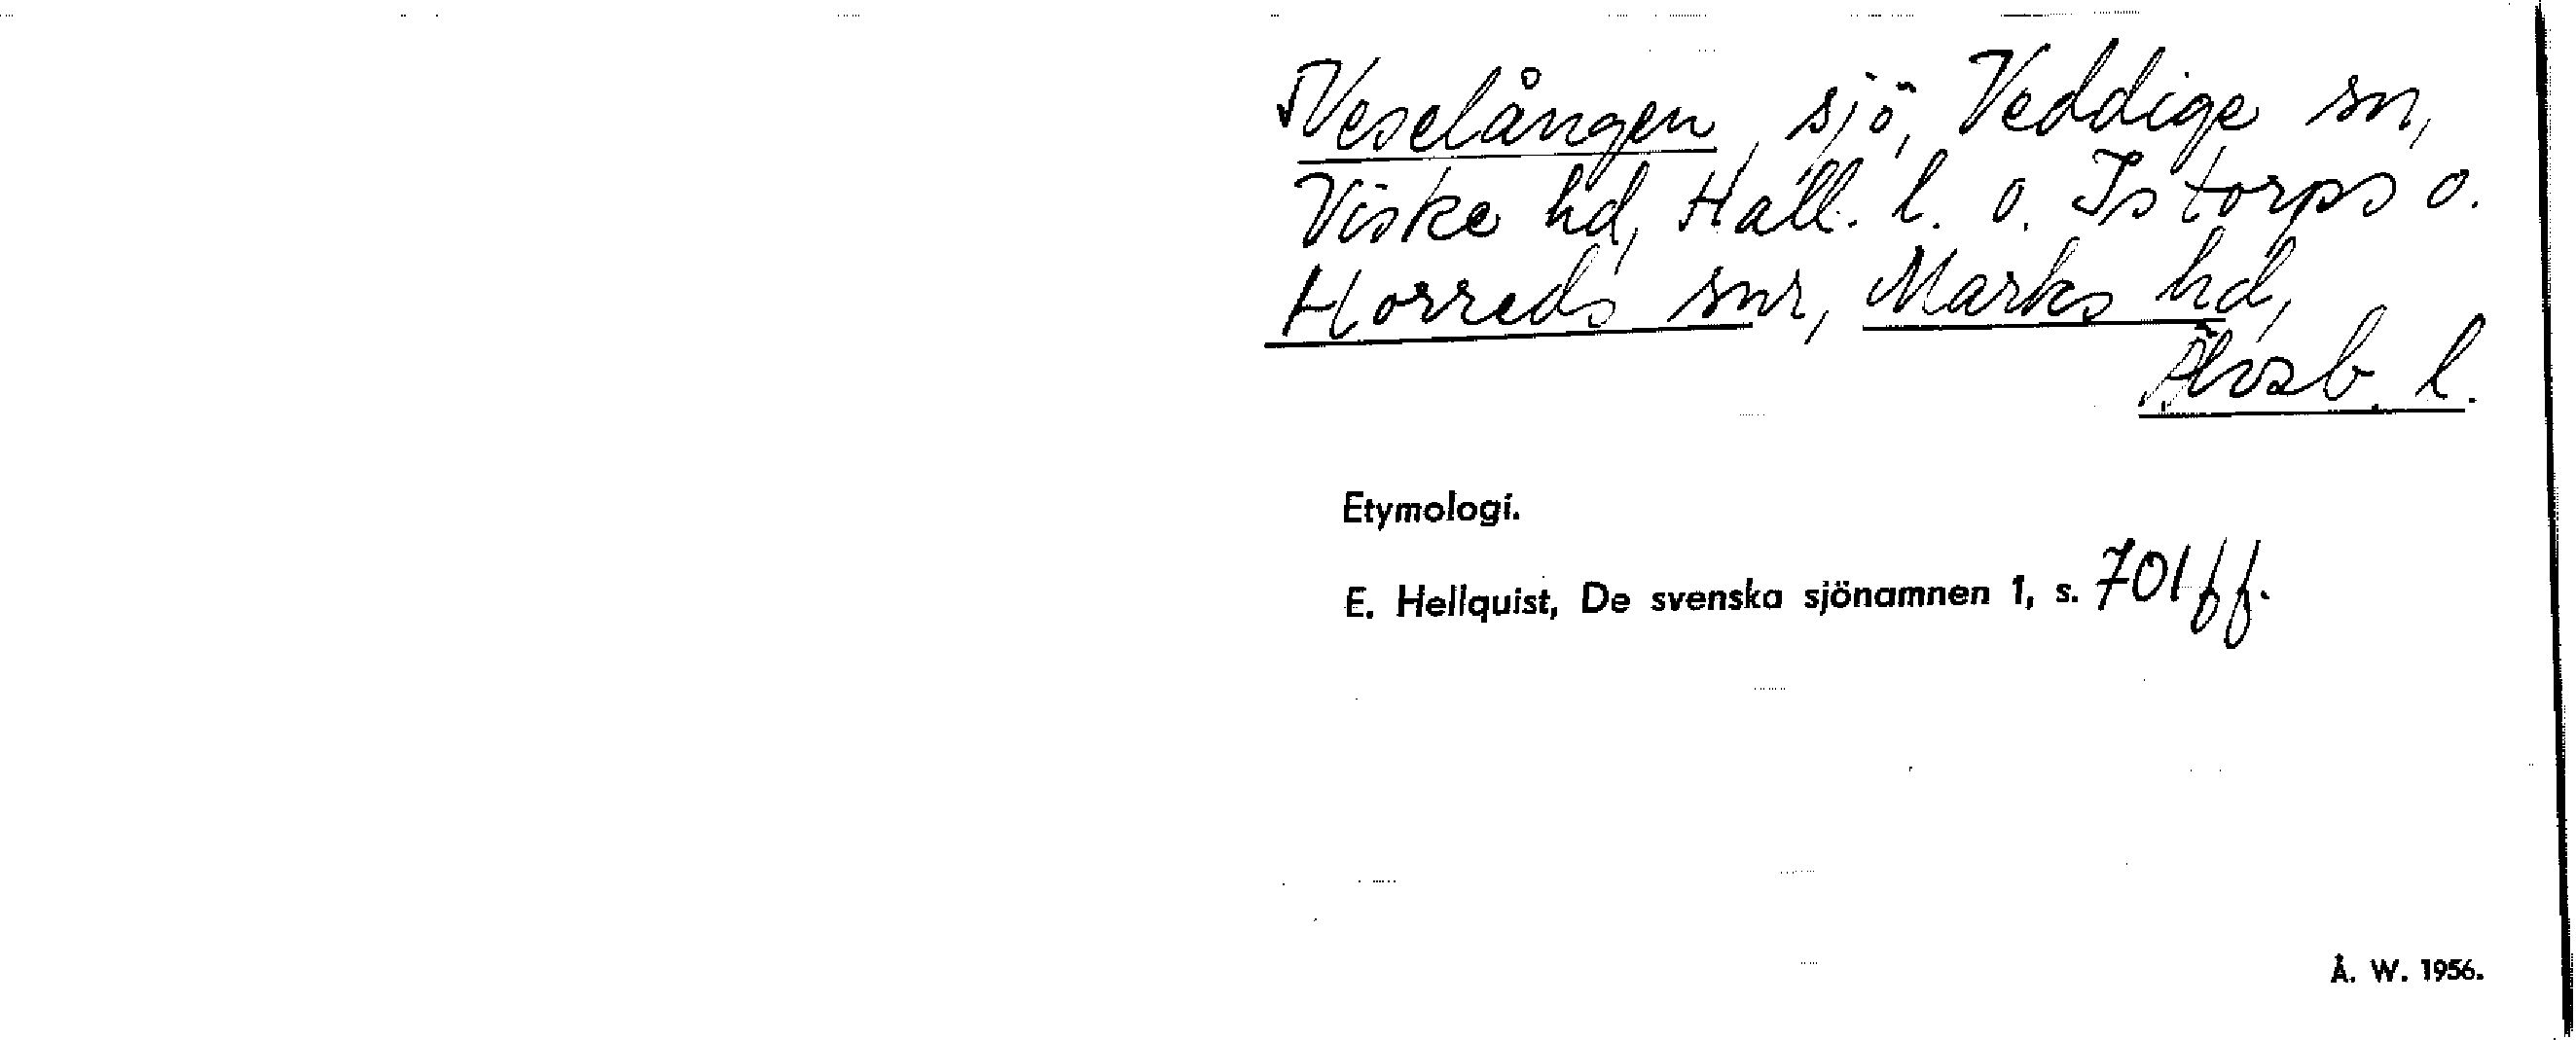 √Veselången, sjö, Veddige sn,
Viske hd, Hall. l. o. Istorps o.
Horreds snr, Marks hd,
Älvsb. l.
Etymologi.
E. Hellquist, De svenska sjönamnen 1, s. 701 ff.
Å. W. 1956.